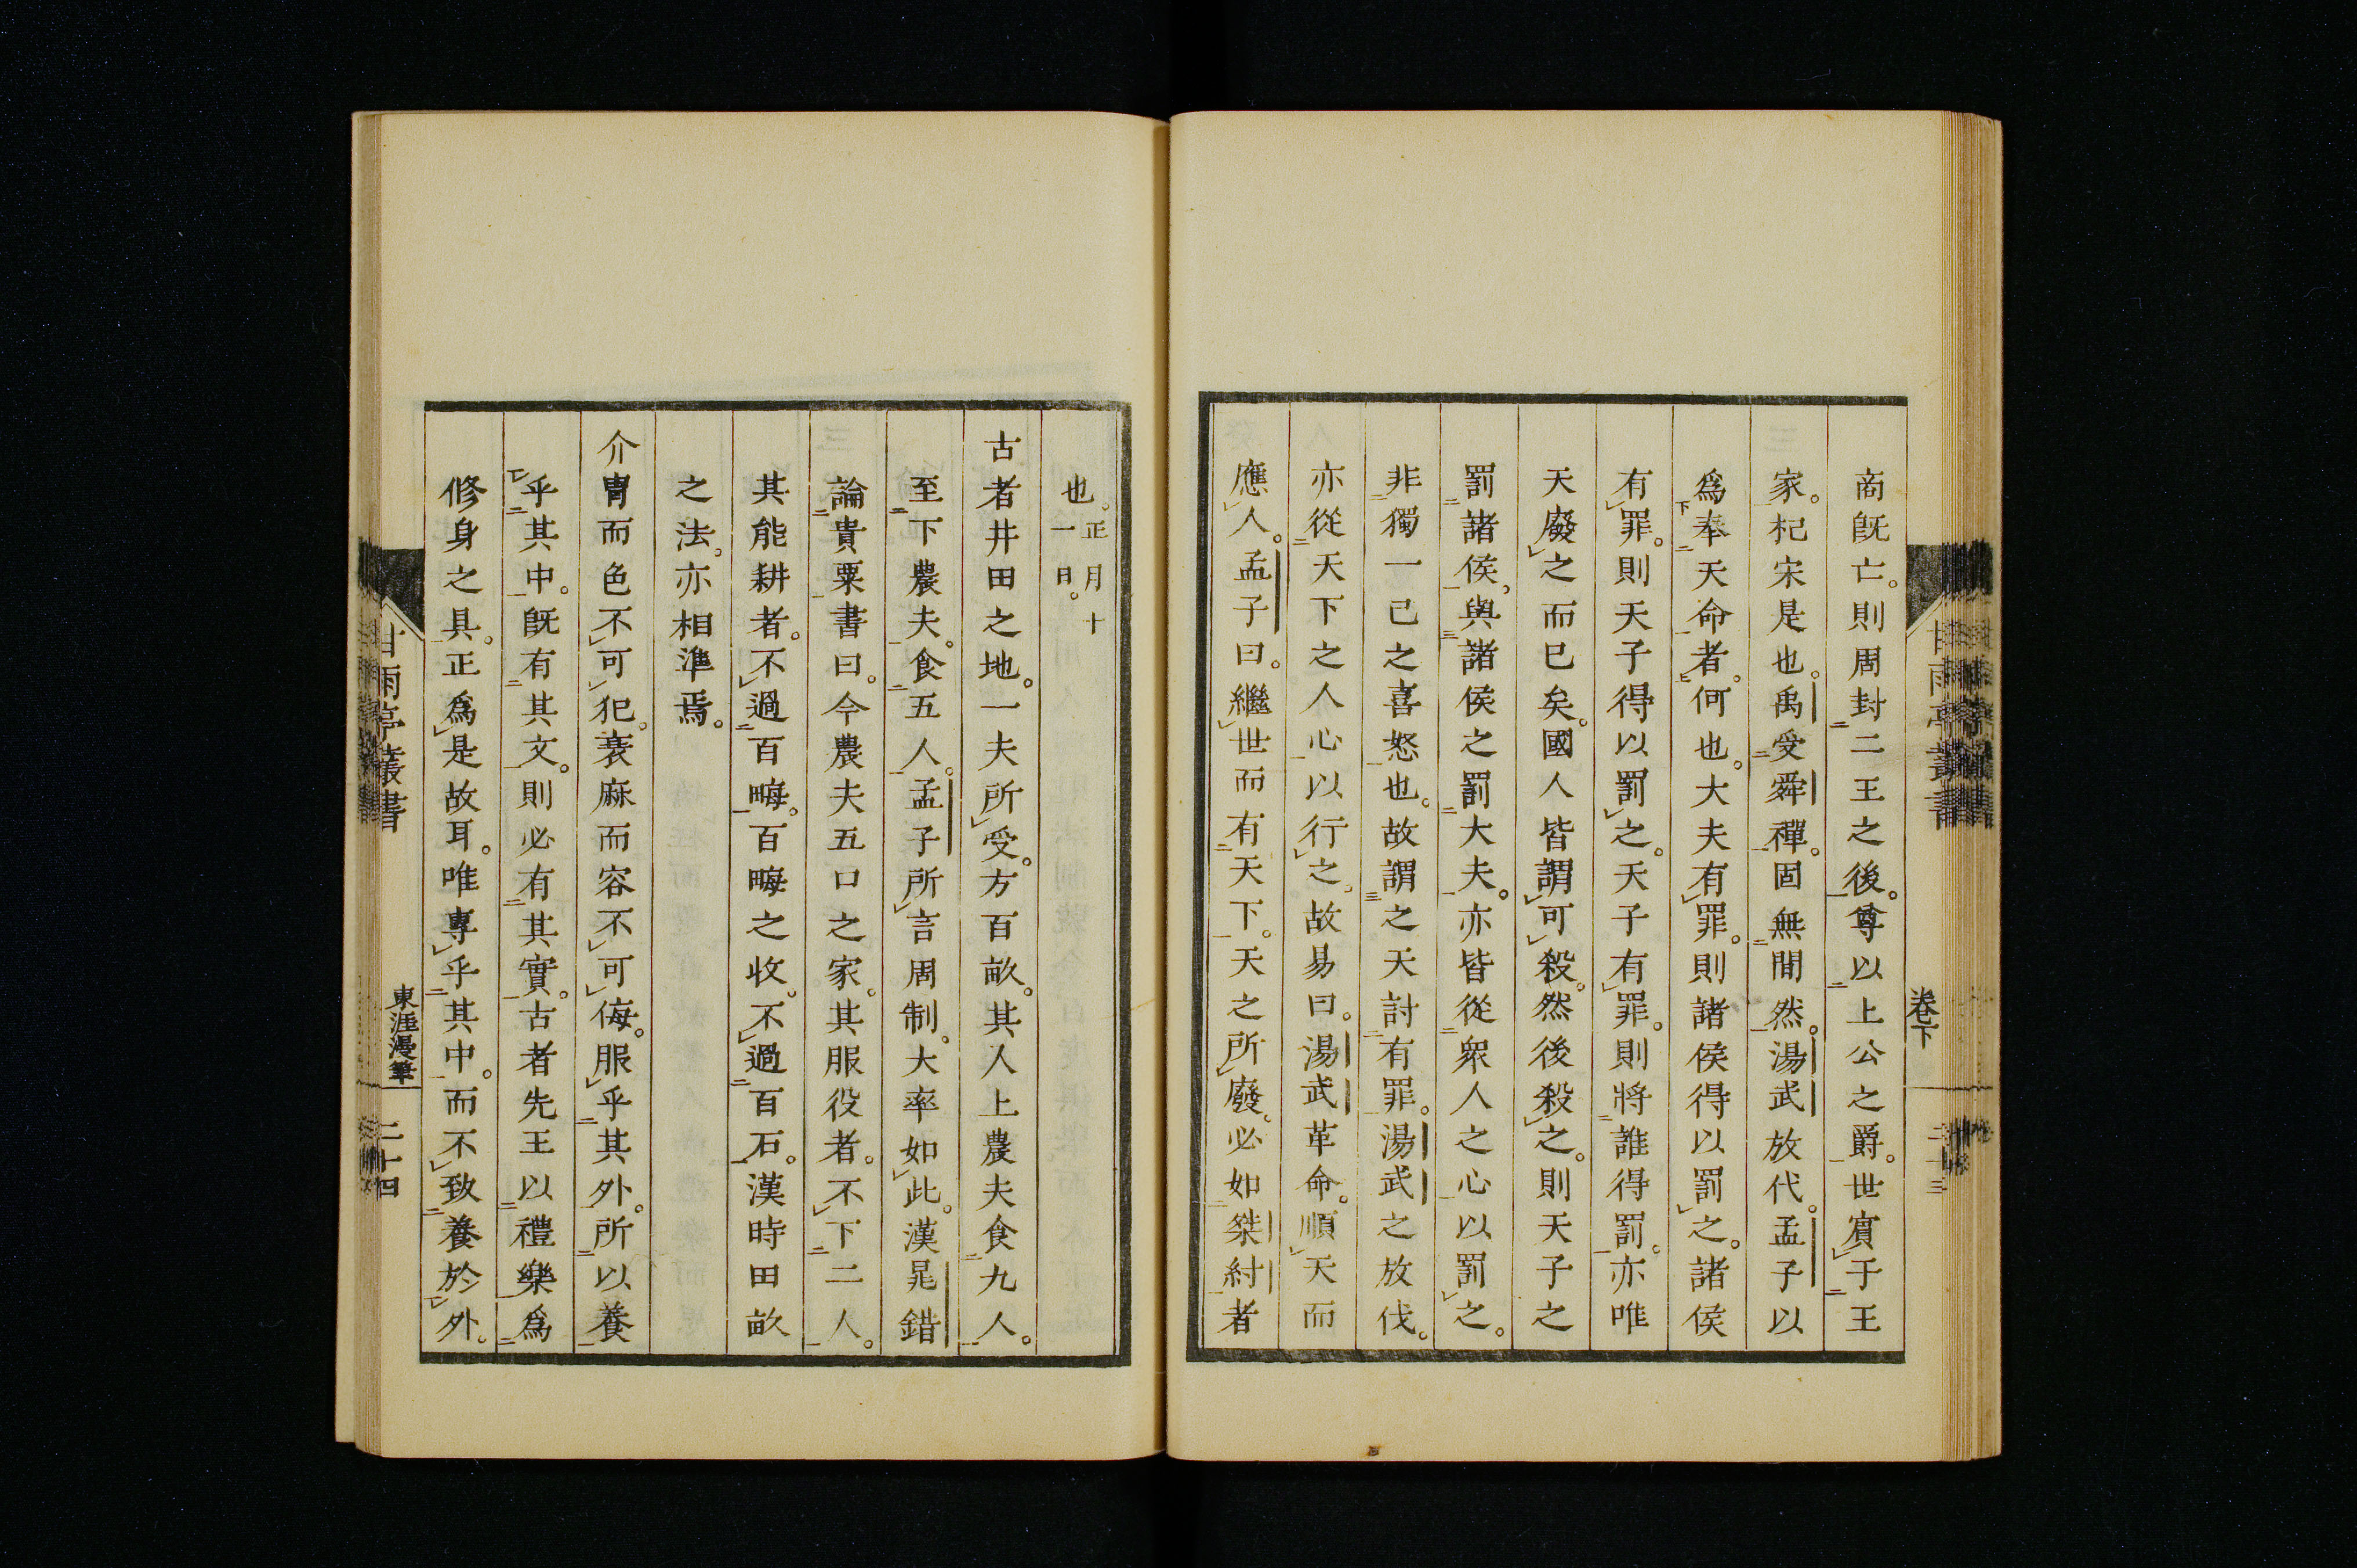 商旣亡。則周封二王之後。尊以上公之爵。世賓于王
家。杞宋是也。禹受舜禪。固無間然。湯武放代。孟子以
爲奉天命者。何也。大夫有罪。則諸侯得以罰之。諸侯
有罪。則天子得以罰之。天子有罪。則將誰得罰。亦唯
天廢之而已矣。國人皆謂可殺。然後殺之。則天子之
罰諸侯。與諸侯之罰大夫。亦皆從衆人之心以罰之。
非獨一己之喜怒也。故謂之天討有罪。湯武之放伐。
亦從天下之人心以行之。故易曰。湯武革命。順天而
應人。孟子曰。繼世而有天下。天之所廢。必如桀紂者
卷下
也。正月十
一日。
古者井田之地。一夫所受。方百畝。其人上農夫食九人。
至下農夫。食五人。孟子所言周制。大率如此。漢晁錯
論貴粟書曰。今農夫五口之家。其服役者。不下二人。
其能耕者。不過百畮。百畮之收。不過百石。漢時田畝
之法。亦相準焉。
介冑而色不可犯。衰麻而容不可侮。服乎其外。所以養
乎其中。旣有其文。則必有其實。古者先王以禮樂爲
修身之具。正爲是故耳。唯專乎其中。而不致養於外。
甘雨亭叢書
東涯漫筆
二十四